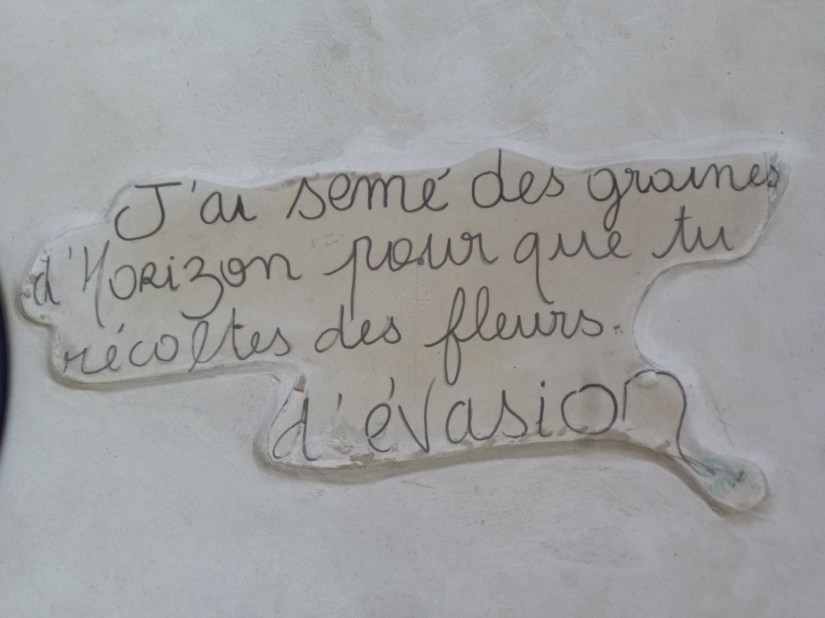 J'ai semé des graines
d'Horizon pour que tu
récoltes des fleurs
d'évasion